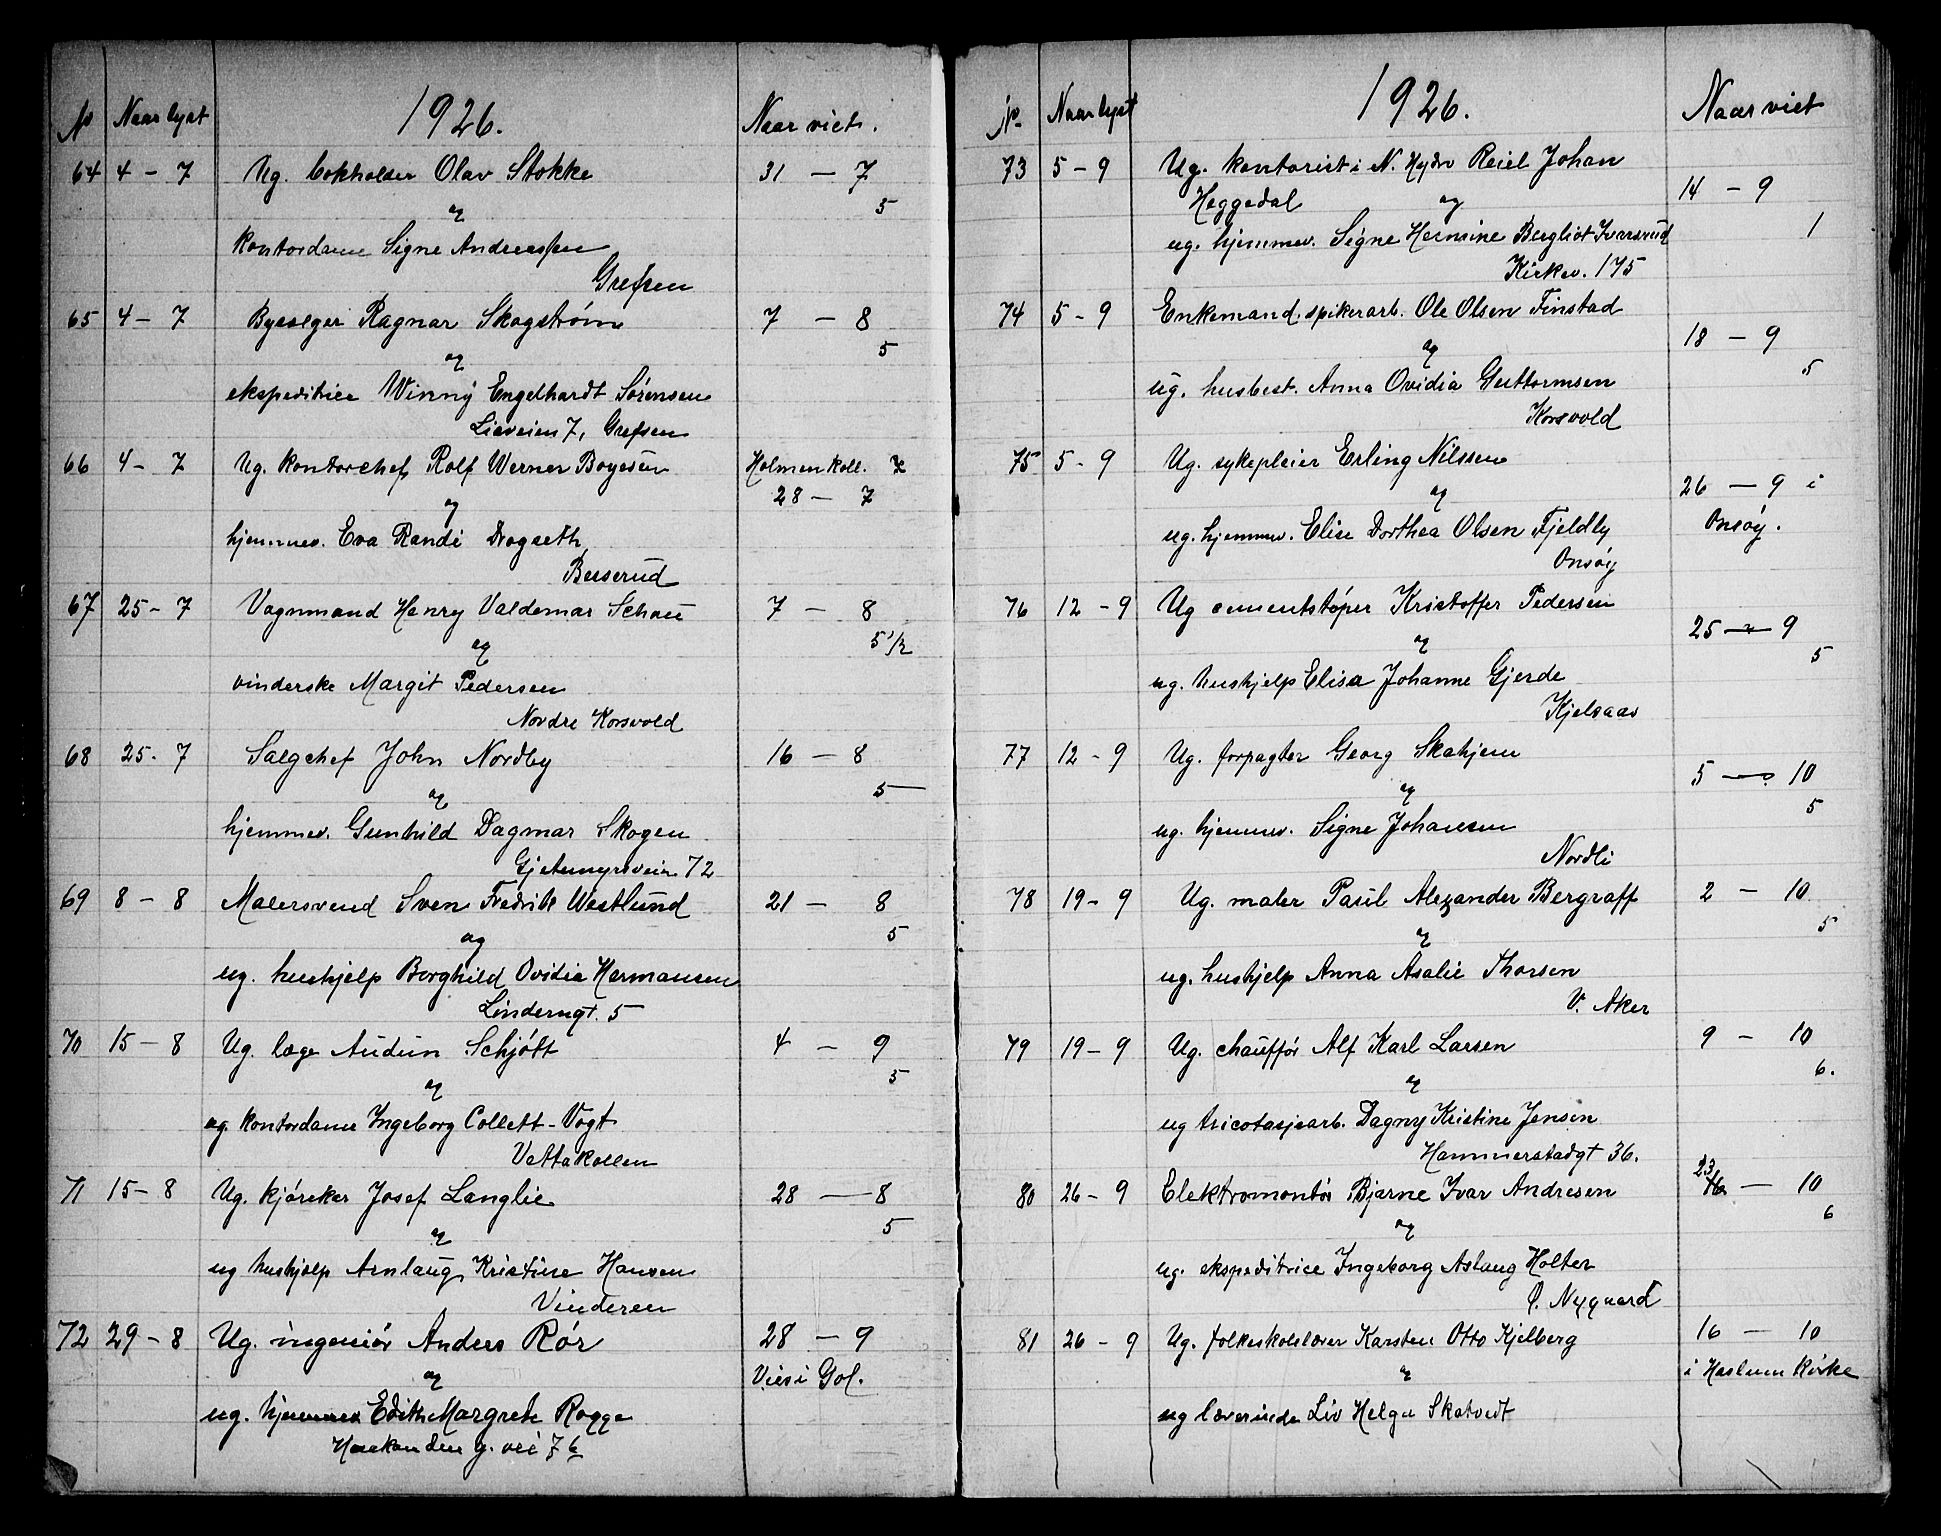 No Naar lyst 1926. Naar viet.
64 4 - 7 Ug. bokholder Olav Stokke 31 - 7
og 5
kontordame Signe Andreassen
Grefsen
65 4 - 7 Bysælger Ragnar Skogstrøm 7 - 8
og 5
ekspeditrice Winny Engelhardt Sørensen
Lieveien 7, Grefsen
66 4 - 7 Ug. kontorchef Rolf Werner Boyesen Holmenkoll. 7
og 28 - 7
hjemmev. Eva Randi Drogseth
Besserud
67 25 - 7 Vognmand Henry Valdemar Schou 7 - 8
og 5 1/2
vinderske Margit Pedersen
Nordre Korsvold
68 25 - 7 Salgchef John Nordby 16 - 8
og 5
hjemmev. Gunhild Dagmar Skogen
Gjetemyrsveien 72
69 8 - 8 Malersvend Sven Fredrik Westlund 21 - 8
og 5
ug. hushjelp Borghild Ovidia Hermansen
Linderngt. 5
70 15 - 8 Ug. læge Audun Schjött 4 - 9
og 5
ug. kontordame Ingeborg Collett-Vogt
Vettakollen
71 15 - 8 Ug. kjørekar Josef Langlie 28 - 8
og 5
ug hushjelp Arnlaug Kristine Hansen
Vinderen
72 29 - 8 Ug. ingeniør Anders Rör 28 - 9
og Vies i Gol.
ug. hjemmev. Edith Margrethe Rogge
g. vei 76
No. Naar lyst 1926. Naar viet
73 5 - 9 Ug. kontorist i N. Hydro Reiel Johan
Heggedal og 14 - 9
ug. hjemmev. Signe Hermine Bergliot Ivarsrud 1
Kirkev. 175
74 5 - 9 Enkemand. spikerarb. Ole Olsen Finstad
og 18 - 9
ug. husbest. Anna Ovidia Guttormsen 5
Korsvold
75 5 - 9 Ug. sykepleier Erling Nilssen
og 26 - 9 i
ug. hjemmev. Elise Dorthea Olsen Fjeldby Onsøy.
Onsøy
76 12 - 9 Ug cementstøper Kristoffer Pedersen
og 25 - 9
ug. hushjelp Elisa Johanne Gjerde 5
Kjelsaas
77 12 - 9 Ug. forpagter Georg Skahjem
og 5 - 10
ug. hjemmev. Signe Johansen 5
Nordli
78 19 - 9 Ug. maler Paul Alexander Bergraff 2 - 10
og 5
ug. hushjelp Anna Asalie Thorsen
V. Aker
79 19 - 9 Ug. chauffør Alf Karl Larsen 9 - 10
og 6.
ug tricotasjearb. Dagny Kristine Jensen
Hammerstadgt 36.
80 26 - 9 Elektromontør Bjarne Ivar Andresen 23 - 10
og 6
ug. ekspeditrice Ingeborg Aslaug Holter
Ø. Nygaard
81 26 - 9 Ug. folkeskolelærer Karsten Otto Kjelberg 16 - 10
og i Haslum Kirke
ug lærerinde Liv Helga Skatvedt